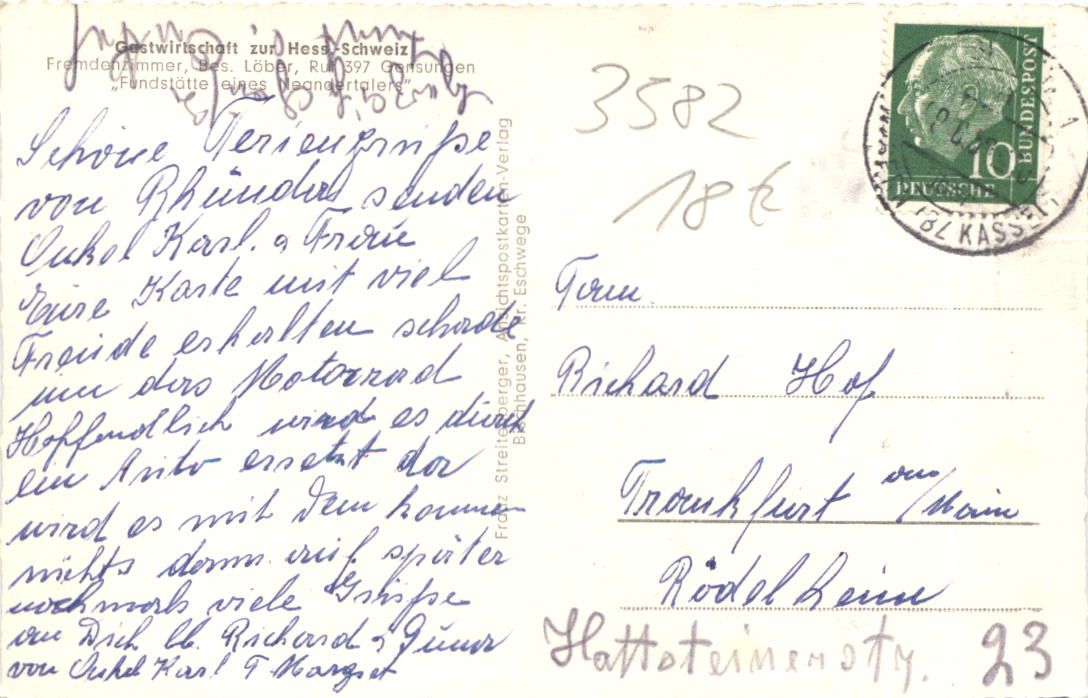 Gastwirtschaft zur Hess. Schweiz
Fremdenzimmer, Bes. Löber, Ruf 397 Gensungen
„Fundstätte eines Neandertalers"
Schöne Feriengrüße
von Rhünda senden
Onkel Karl. u Frau
Eure Karte mit viel
Freude erhalten schade
um das Motorrad
Hoffendlich wird es durch
ein Auto ersetzt da
wird es mit dem kommen
nichts dann auf später
nochmals viele Grüße
an Dich lb. Richard u
von Onkel Karl T Margret
Franz Streitenberger, Ansichtspostkarten-Verlag
Bischhausen, Kr. Eschwege
3582
18 €
DEUTSCHE
BUNDESPOST
10
(BZ KASSEL)
Fam.
Richard Hof
Frankfurt am/Main
Rödelheim
Hattsteinerstr. 23